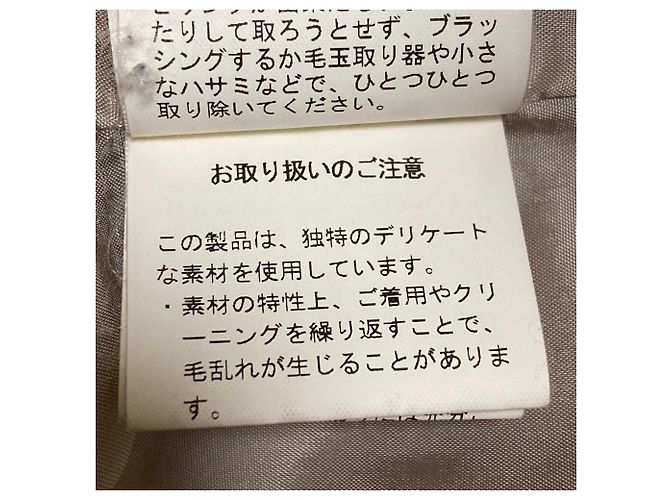 たりして取ろうとせず、ブラッ
シングするか毛玉取り器や小さ
なハサミなどで、ひとつひとつ
取り除いてください。
お取り扱いのご注意
この製品は、独特のデリケート
な素材を使用しています。
・素材の特性上、ご着用やクリ
ーニングを繰り返すことで、
毛乱れが生じることがありま
す。